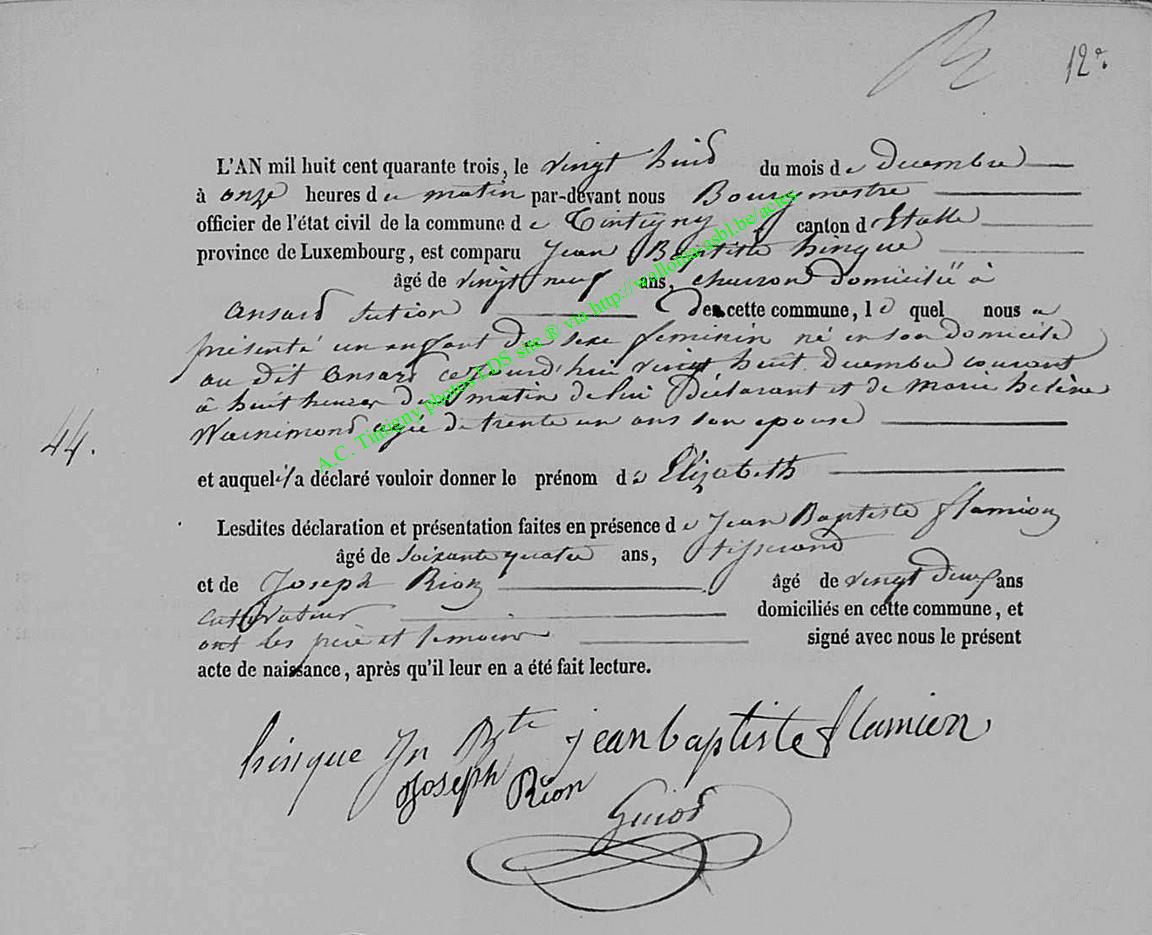 12e
L'AN mil huit cent quarante trois, le vingt huit du mois de Decembre
à onze heures du matin par-devant nous Bourgmestre
officier de l'état civil de la commune de Tintigny canton d'Etalle
province de Luxembourg, est comparu Jean Baptiste hinque
âgé de vingt neuf ans, charron domicilié à
Ansart section de cette commune, le quel nous a
présenté un enfant du sexe feminin né en son domicile
au dit Ansart cejourd'hui vingt huit Decembre courant
à huit heures du matin de lui Déclarant et de Marie helene
Warnimond agée de trente un ans son epouse
44.
et auquel il a déclaré vouloir donner le prénom de Elizabeth
Lesdites déclaration et présentation faites en présence de Jean Baptiste flamion
âgé de soixante quatre ans, tisserand
et de Joseph Rion âgé de vingt deux ans
cultivateur domiciliés en cette commune, et
ont les père et temoins signé avec nous le présent
acte de naissance, après qu'il leur en a été fait lecture.
hinque Jn Bte jean baptiste flamion
Joseph Rion
Guiot
A.C. Tintigny photos LDS site ® via http://wallonica.asbl.be/actes